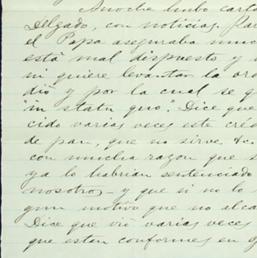 Anoche hubo carta
Delgado, con noticias. Par
el Papa aseguraba muc
está mal dispuesto y
ni quiere levantar la or
dió y por la cual se q
"in statu quo". Dice que
cido varias veces este cré
de par, que no sirve, &c.
con mucha razon que s
ya lo habrian sentenciado
nosotros — y que si no lo
gun motivo que no alca
Dice que vió varias veces
que estan conformes en q